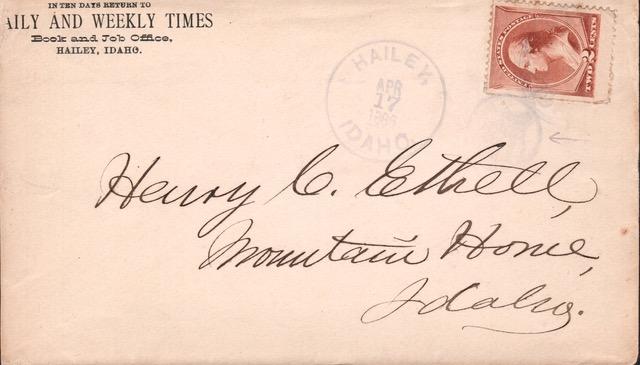 IN TEN DAYS RETURN TO
AILY AND WEEKLY TIMES
Book and Job Office,
HAILEY, IDAHO.
HAILEY,
APR
17
IDAHO
UNITED STATES POSTAGE
TWO 2 CENTS
Henry C. Ethell,
Mountain Home,
Idaho.